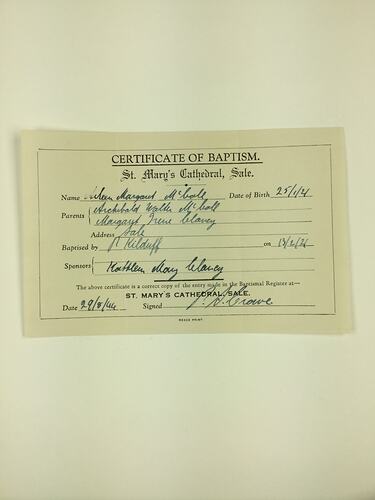 CERTIFICATE OF BAPTISM.
St. Mary's Cathedral, Sale.
Name Margaret McColl Date of Birth 25/1/21
Parents Archibald Walter McColl
Margaret Irene Clancy
Address Sale
Baptised by P. Kilduff on 13/2/21
Sponsors Kathleen Mary Clancy
The above certificate is a correct copy of the entry made in the Baptismal Register at—
ST. MARY'S CATHEDRAL, SALE.
Date 29/8/44 Signed Crowe